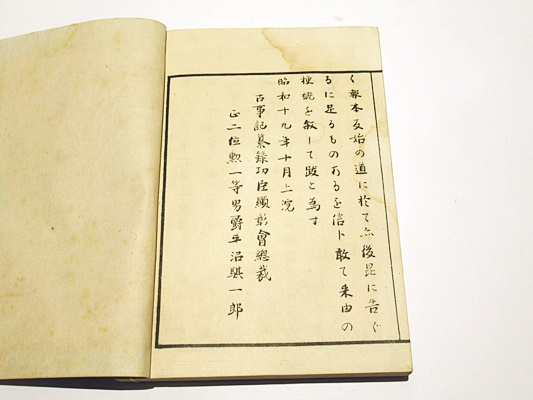 く報本反始の道に於て亦後昆に告ぐ
るに足るものあるを信ト敢て来由の
梗概を叙して跋と為す
昭和十九年十月上浣
古事記纂録功臣顕彰會總裁
正二位勲一等男爵平沼騏一郎